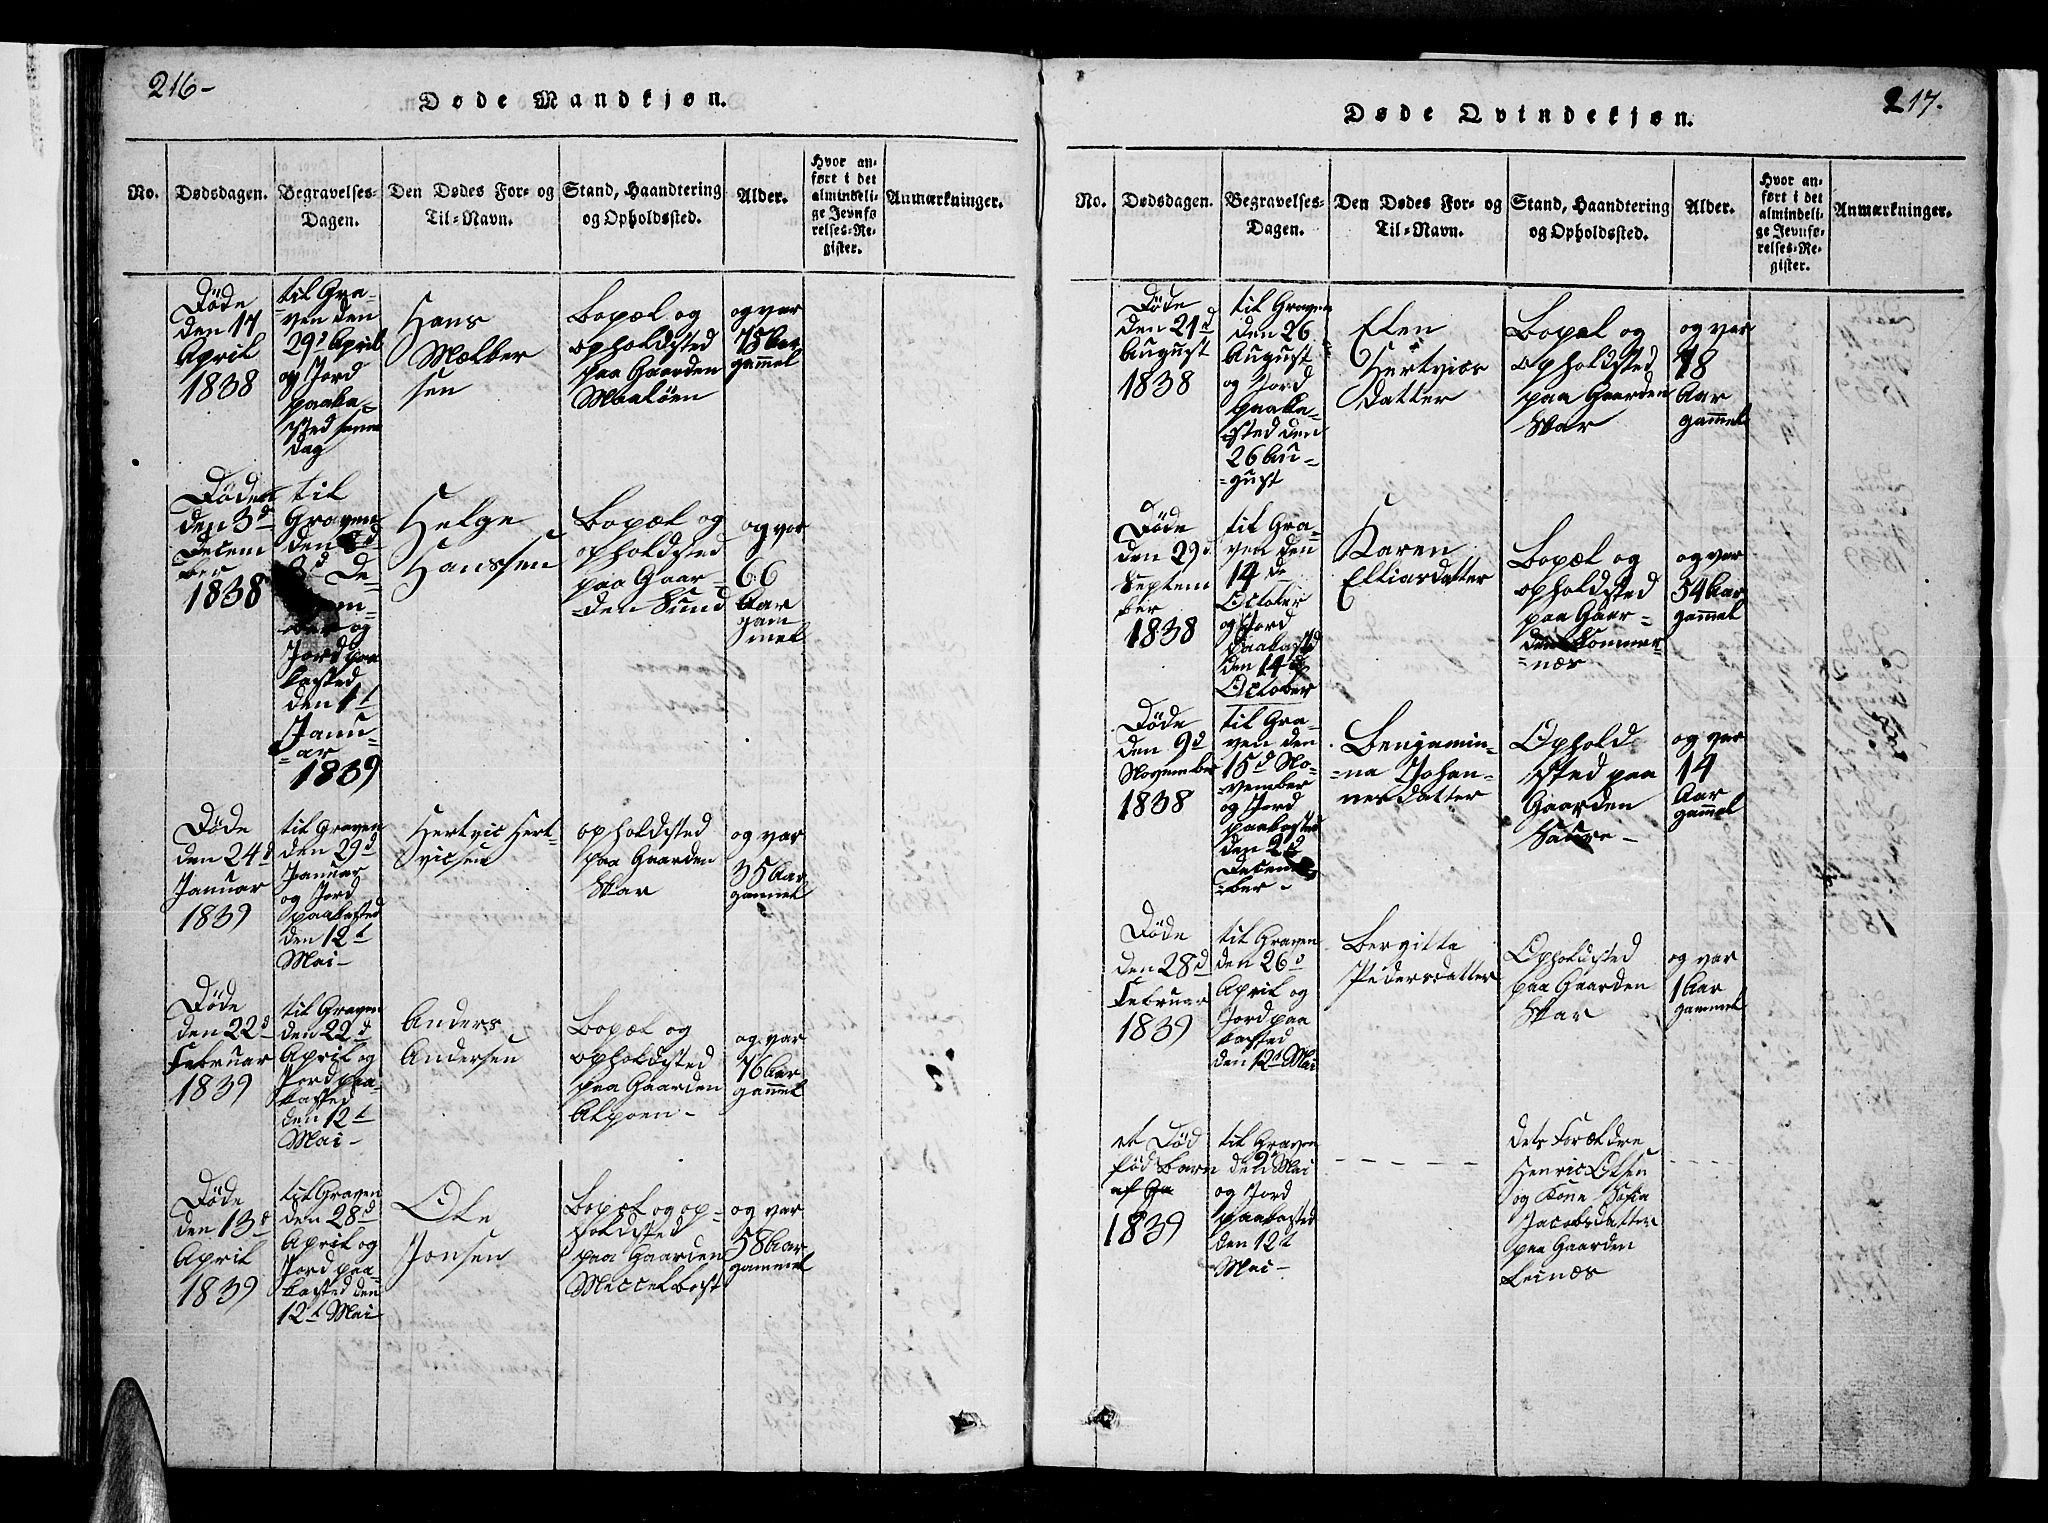 216-
Døde Mandkjøn.
No.
Dødsdagen.
Begravelses-
Dagen.
Den Dødes For- og
Til-Navn.
Stand, Haandtering
og Opholdssted.
Alder.
Hvor an-
ført i det
almindeli-
ge Jevnfø
relses-Re-
gister.
Anmærkninger.
Døde
den 17
April
1838
til Gra-
ven den
29d April
og Jord
paaka-
sted samme
dag
Hans
Molber
sen
Bopæl og
opholdsted
paa Gaarden
Maaløen
og var
75 Aar
gammel
Døde
den 3d
Decem
ber
1838
til
Graven
den
8d De-
cem-
ber og
Jord paa
kasted
den 1t
Janu-
ar
1839
Helge
Hanssen
Bopæl og
opholdsted
paa Gaar-
den Sund
og var
66
Aar
gam
mel
Døde
den 24d
Januar
1839
til Graven
den 29d
Januar
og Jord
paakasted
den 12t
Mai-
Hertvic Hert
vicsen
opholdsted
paa Gaarden
Skar
og var
35 Aar
gammel
Døde
den 22d
Februar
1839
til Graven
den 22d
April og
Jord paa-
kasted
den 12t
Mai-
Anders
Andersen
Bopæl og
opholdsted
paa Gaarden
Alpøen-
og var
76 Aar
gammel
Døde
den 13d
April
1839
til Graven
den 28d
April og
Jord paa-
kasted den
12t Mai
Ole
Jonsen
Bopæl og op-
holdsted
paa Gaarden
Meccelbost
og var
58 Aar
gammel
217.
Døde Qvindekjøn.
No.
Dødsdagen.
Begravelses-
Dagen.
Den Dødes For- og
Til-Navn.
Stand, Haandtering
og Opholdssted.
Alder.
Hvor an-
ført i det
almindeli-
ge Jevnfø-
relses-Re-
gister.
Anmærkninger.
Døde
den 21d
August
1838
til Graven
den 26
August
og Jord
paaka-
sted den
26 Au-
gust
Elen
Hertvics
Datter
Bopæl og
opholdsted
paa Gaarden
Skar
og var
18
Aar
gammel
Døde
den 29d
Septem
ber
1838
til Gra-
ven den
14 de
October
og Jord
paakasted
den 14d
October
Karen
Elliasdatter
Bopæl og
opholdsted
paa Gaar-
den Sommer-
næs
og var
54 Aar
gammel
Døde
den 9d
November
1838
til Gra-
ven den
15d No-
vember
og Jord
paakasted
den 2d
Decem
ber-
Benjamin-
na Johan-
nesdatter
Ophold
sted paa
Gaarden
Saure-
og var
14
Aar
gammel
Døde
den 28d
Februar
1839
til Graven
den 26d
April og
Jord paa
kasted
den 12t Mai
Bergitta
Pedersdatter
Opholdsted
paa Gaarden
Skar
og var
1 Aar
gammel
et Død
fød barn
af Ga
1839
til Graven
den Mai
og Jord
paakasted
den 12t
Mai-
dets Forældre
Henric Olsen
og Kone Sofia
Jacobsdatter
paa Gaarden
Leinæs